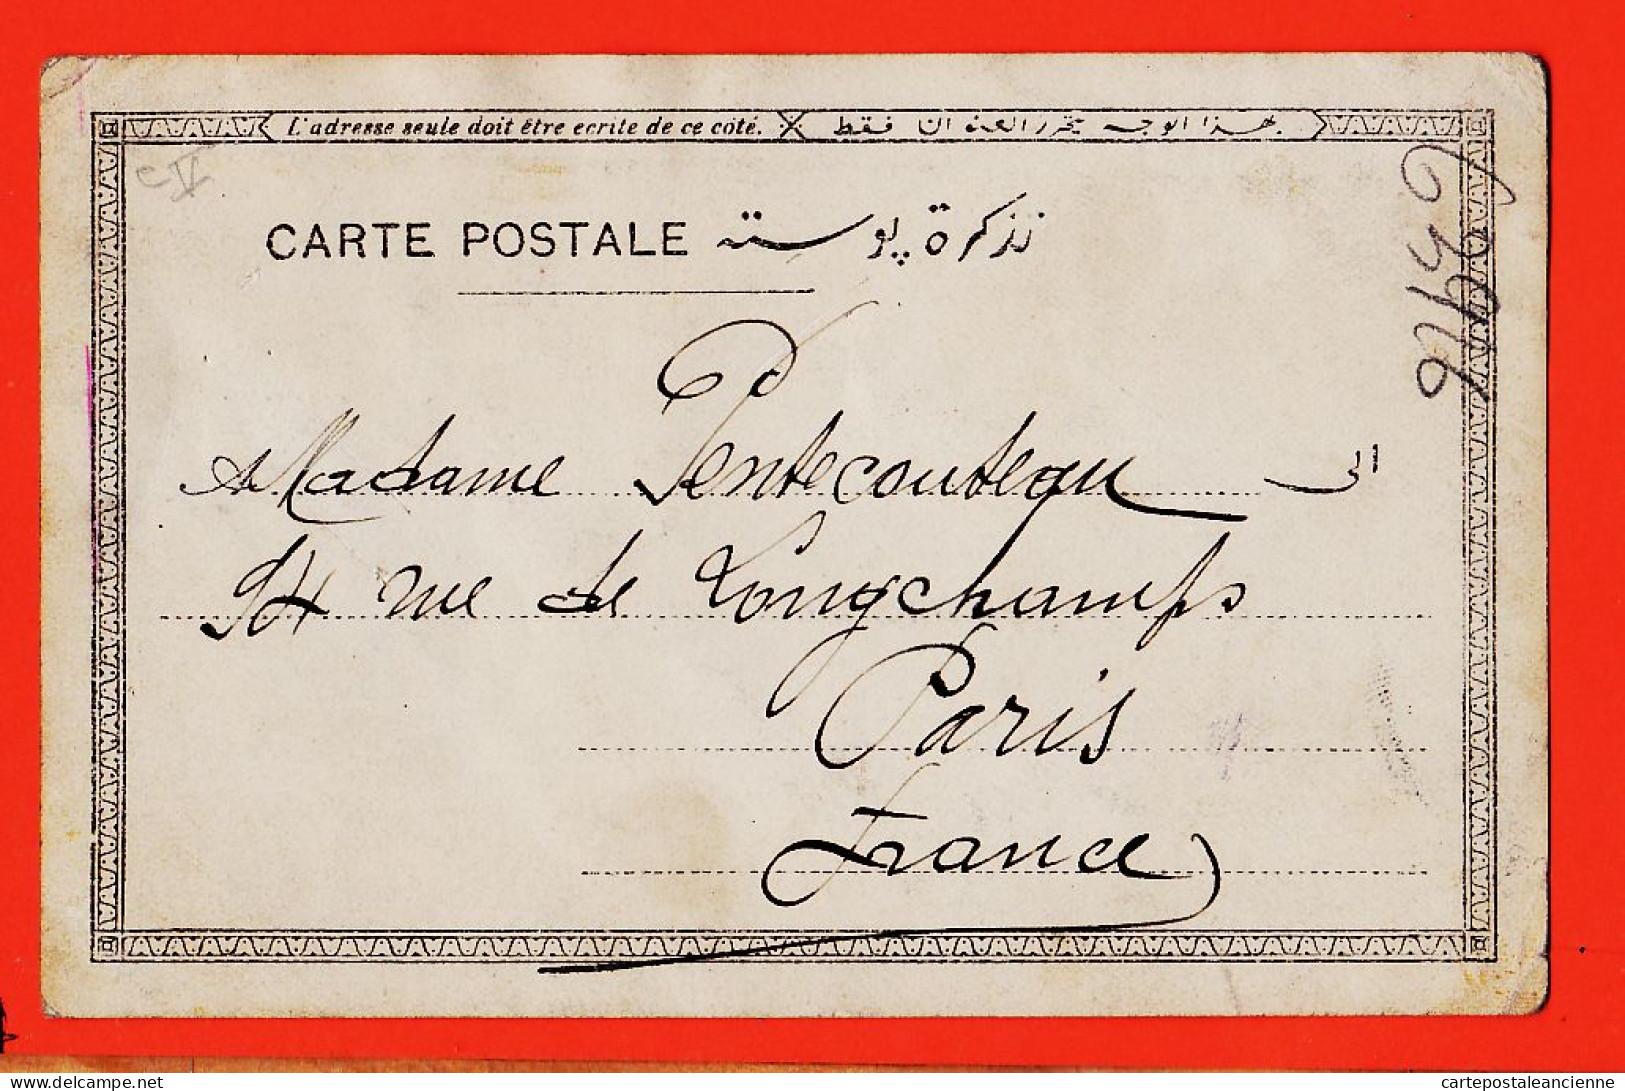 L'adresse seule doit être ecrite de ce coté. بهذا الوجه يحرر العنوان فقط
CARTE POSTALE تذكرة پوسته
Madame Pentecouteau الى
94 rue de Longchamps
Paris
France
cartepostaleancienne
www.delcampe.net